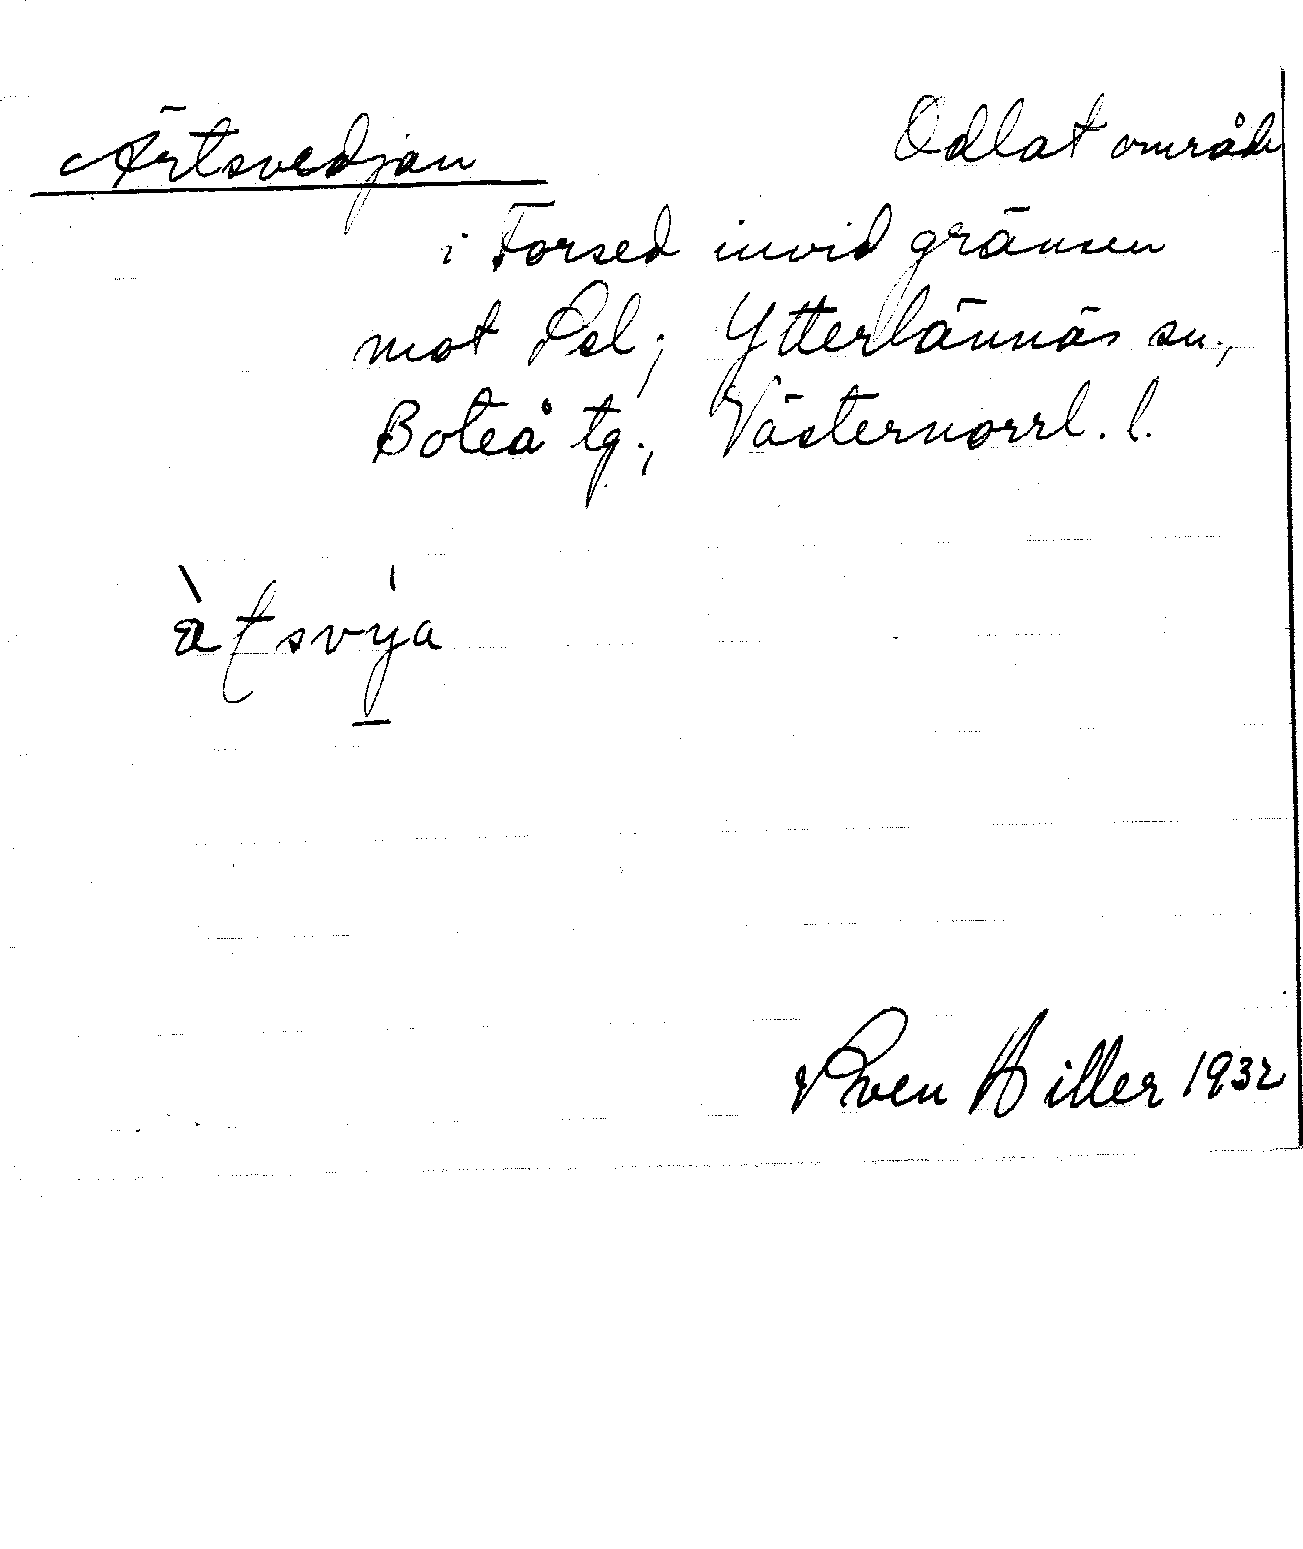 Ärtsvedjan Odlat område
i Forsed invid gränsen
mot Sel; Ytterlännäs sn.,
Boteå tg., Västernorrl. l.
Sven Hiller 1932